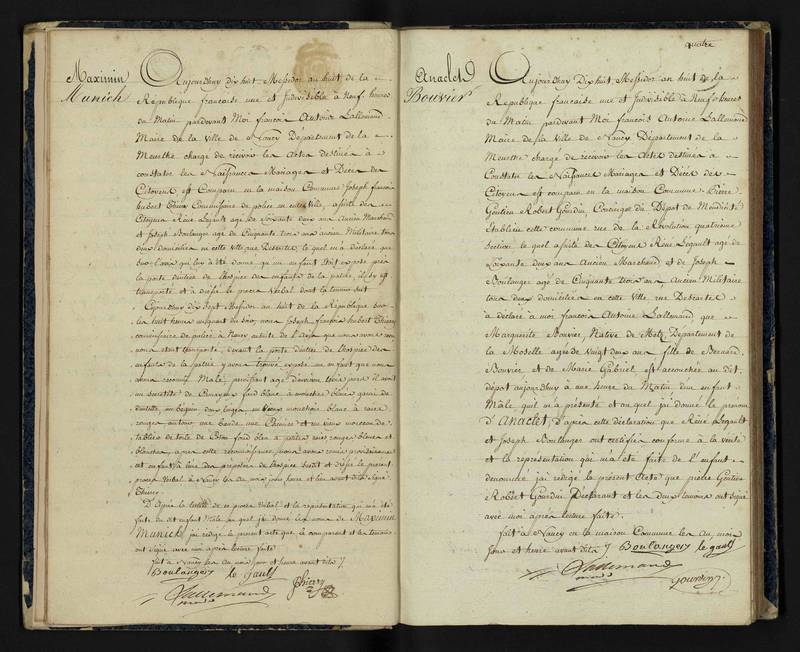 Maximin
Munich
Aujourdhuy Dix huit Messidor an huit de la
République française une et Indivisible à Neuf heures
du Matin pardevant Moi françois Antoine Lallemand
Maire de la ville de Nancy Département de la
Meurthe chargé de recevoir les Actes destinés à
constater les Naissances Mariages et Décès des
Citoyens est Comparu en la maison Commune Joseph françois
hubert Thiery Commissaire de police en cette ville, assisté des
Citoyens Réné Legault agé de Soixante deux ans Ancien Marchand
et Joseph Boulanger agé de Cinquante trois ans ancien Militaire tous
deux domiciliés en cette ville rue Descartes, lequel m'a déclaré que
sur l'avis qui luy a été donné qu'un enfant était exposé près
la porte d'entrée de l'hospice des enfants de la patrie, il s'y est
transporté et a dressé le procès Verbal dont la teneur suit
Cejourdhuy dix sept Messidor an huit de la République, sur
les huit heures du soir, nous Joseph françois hubert Thiery
commissaire de police à Nancy
nous étant transporté, devant la porte d'entrée de l'hospice des
enfants de la patrie y avons trouvé exposé un enfant que nous
avons reconnu Mâle, paraissant agé d'environ trois jours il avait
dentelle, un béguin, deux langes, un vieux mouchoir blanc à raies
rouges
tablier de toile de Coton fond bleu à petites raies rouges bleues et
blanches, après cette reconnaissance, nous avons remis
cet enfant à l'une des préposées de l'hospice susdit et dressé le présent
procès Verbal à Nancy les an mois jour heure et lieu avant dits signé
Thiery
D'après la lecture de ce procès Verbal et la représentation qui m'a été
faite du dit enfant Mâle, auquel j'ai donné les noms de Maximin
Munich, j'ai rédigé le présent acte que le comparant et les témoins
ont signé avec moi après lecture faite
fait à Nancy les an mois jour et heure avant dits
Boulanger le gault Thiery
Lallemand
quatre
Anaclet
Bouvier
Aujourdhuy Dix huit Messidor an huit de la
République française une et Indivisible à Neuf heures
du Matin pardevant Moi françois Antoine Lallemand
Maire de la Ville de Nancy Département de la
Meurthe chargé de recevoir les Actes destinés à
Constater les Naissances Mariages et Décès des
Citoyens est comparu en la maison Commune Pierre
Gentien Robert Gourdin, Concierge du Dépot de Mendicité
établi en cette commune rue de la Révolution quatrieme
Section lequel assisté des Citoyens Réné Legault agé de
Soixante deux ans Ancien Marchand et de Joseph
Boulanger agé de Cinquante trois ans Ancien Militaire
tous deux domiciliés en cette Ville rue Descartes
a déclaré à moi françois Antoine Lallemand que
Marguerite Bouvier, Native de Metz Département de
la Moselle agée de Vingt deux ans fille de Bernard
Bouvier et de Marie Gabriel est accouchée au dit
dépot aujourdhuy à une heure du Matin d'un enfant
Mâle qu'il m'a présenté et auquel j'ai donné le prénom
d'Anaclet, D'après cette déclaration que Réné Legault
et Joseph Boulanger ont certifiée conforme à la vérité
et la représentation qui m'a été faite de l'enfant
dénommé j'ai rédigé le présent Acte que pierre Gentien
Robert Gourdin Déclarant et les deux témoins ont signé
avec moi après lecture faite
fait à Nancy en la maison Commune les an, mois
Jour et heure avant dits Boulanger le gault
Lallemand
gourdin